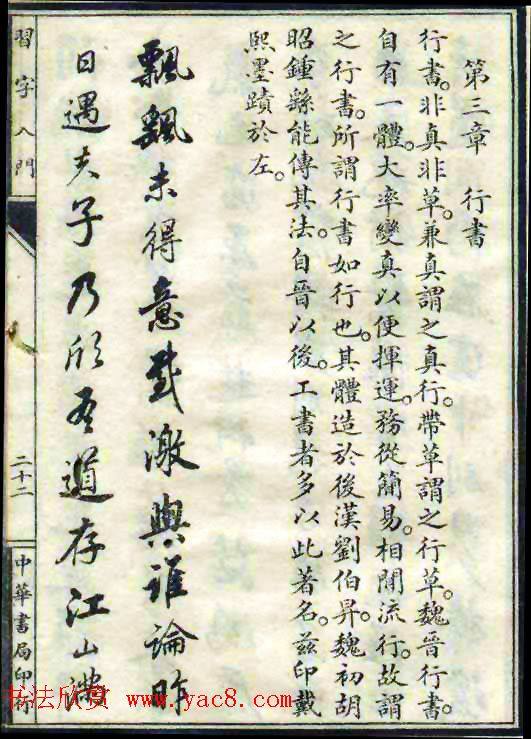 第三章　行書
行書。非真非草。兼真謂之真行。帶草謂之行草。魏晉行書。
自有一體。大率變真以便揮運。務從簡易。相間流行。故謂
之行書。所謂行書如行也。其體造於後漢劉伯昇。魏初胡
昭鍾繇能傳其法。自晉以後。工書者多以此著名。茲印戴
熙墨蹟於左。
飄飄未得意感激與誰論昨
日遇夫子乃欣吾道存江山滿
習字入門
二十二
中華書局印行
书法欣赏 www.yac8.com